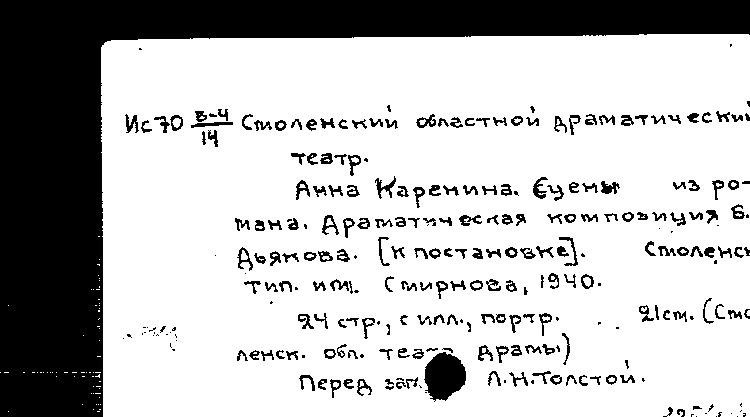 Ис70 В-4/14 Смоленский областной драматический
театр.
Анна Каренина. Сцены из ро-
мана. Драматическая композиция Б.
Дьякова. [К постановке]. Смоленск
тип. им. Смирнова, 1940.
24 стр., с илл., портр. 21см. (Смо
ленск. обл. театр драмы)
Перед загл. Л.Н.Толстой.